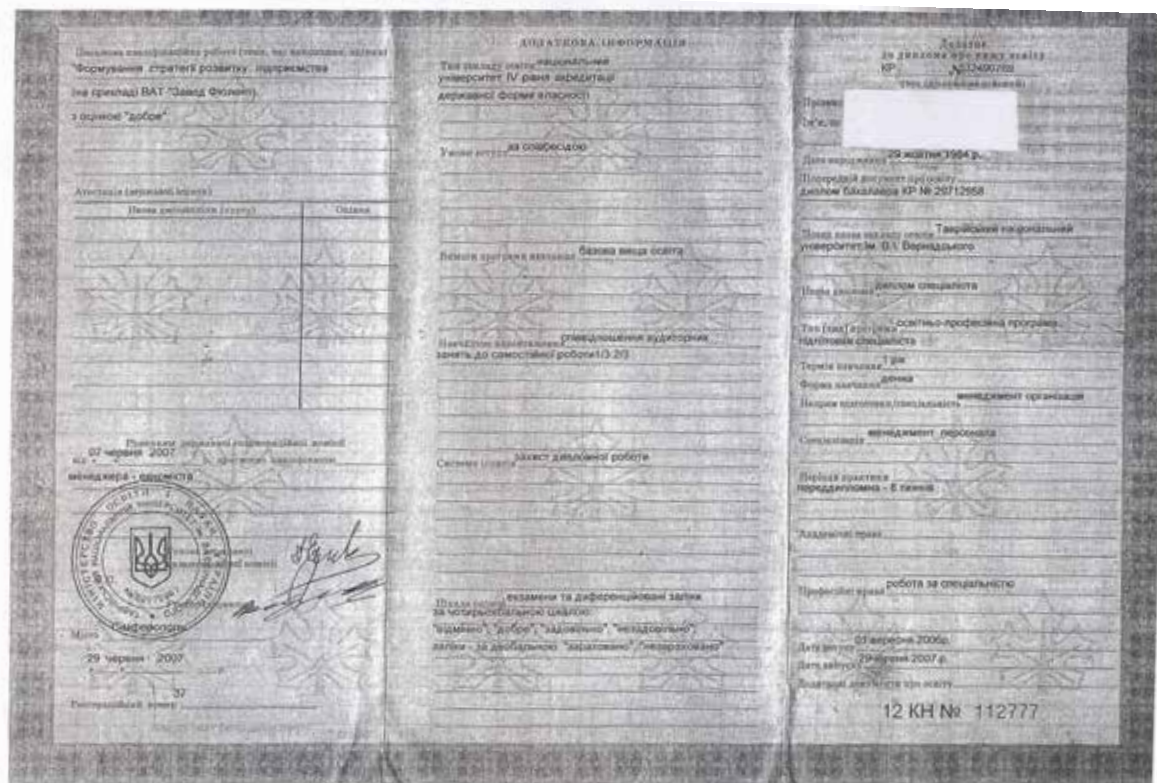 "Формування стратегії розвитку підприємства
(на прикладі ВАТ "Завод Фіолент)
з оцінкою "добре"
Атестація (державні іспити)
Назва дисципліни (курсу) Оцінка
Рішенням державної кваліфікаційної комісії
від 07 червня 2007
менеджера - економіста
Місто Сімферополь
29 червня 2007
Реєстраційний номер 37
ДОДАТКОВА ІНФОРМАЦІЯ
Тип закладу освіти національний
університет IV рівня акредитації
державної форми власності
Умови вступу за співбесідою
Вимоги програми навчання базова вища освіта
Навчальне навантаження співвідношення аудиторних
занять до самостійної роботи 1/3 2/3
Система оцінок захист дипломної роботи
Шкала оцінок екзамени та диференційовані заліки
за чотирьохбальною шкалою:
"відмінно", "добре", "задовільно", "незадовільно";
заліки - за двобальною "зараховано", "незараховано"
Додаток
до диплома про вищу освіту
КР №
Прізвище
Ім'я
Дата народження 29 жовтня 1984 р.
Попередній документ про освіту
диплом бакалавра КР № 29712958
Повна назва закладу освіти Таврійський національний
університет ім. В.І. Вернадського
Назва диплома диплом спеціаліста
Тип (вид) програми освітньо-професійна програма
підготовки спеціаліста
Термін навчання 1 рік
Форма навчання денна
Напрям підготовки/спеціальність менеджмент організацій
Спеціалізація менеджмент персонала
Періоди практики
переддипломна - 6 тижнів
Академічні права
Професійні права робота за спеціальністю
Дата вступу 01 вересня 2006р.
Дата випуску 29 червня 2007 р.
Додаткові документи про освіту
12 КН № 112777